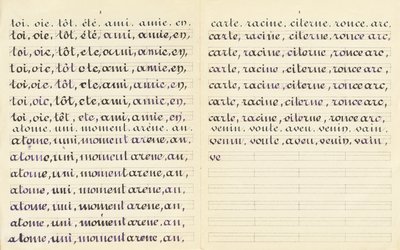 toi. oie. tôt. été. ami. amie. en.
toi, oie, tôt, été, ami, amie, en,
toi, oie, tôt ete, ami, amie, en,
toi, oie, tôt ete, ami, amie, en,
toi. oie. tôt. ete. ami. amie, en,
toi, oie, tôt, ete, ami, amie, en,
toi, oie, tôt, ete, ami, amie, en,
atome. uni. moment. arène. an.
atome, uni, moment arene, an,
atome, uni, moment arene, an,
atome, uni, moment arene, an,
atome, uni, moment arene, an,
atome, uni, moment arene, an,
atome, uni, moment arene, an,
atome, uni, moment arene, an,
carte. racine. citerne. ronce. arc.
carte, racine, citerne, ronce arc,
carte, racine, citerne, ronce arc,
carte, racine, citerne, ronce arc,
carte, racine, citerne, ronce arc,
carte, racine, citerne, ronce arc,
carte, racine, citerne, ronce arc,
venin. voute. aveu. venin. vain.
venin, voute, aveu, venin, vain,
ve